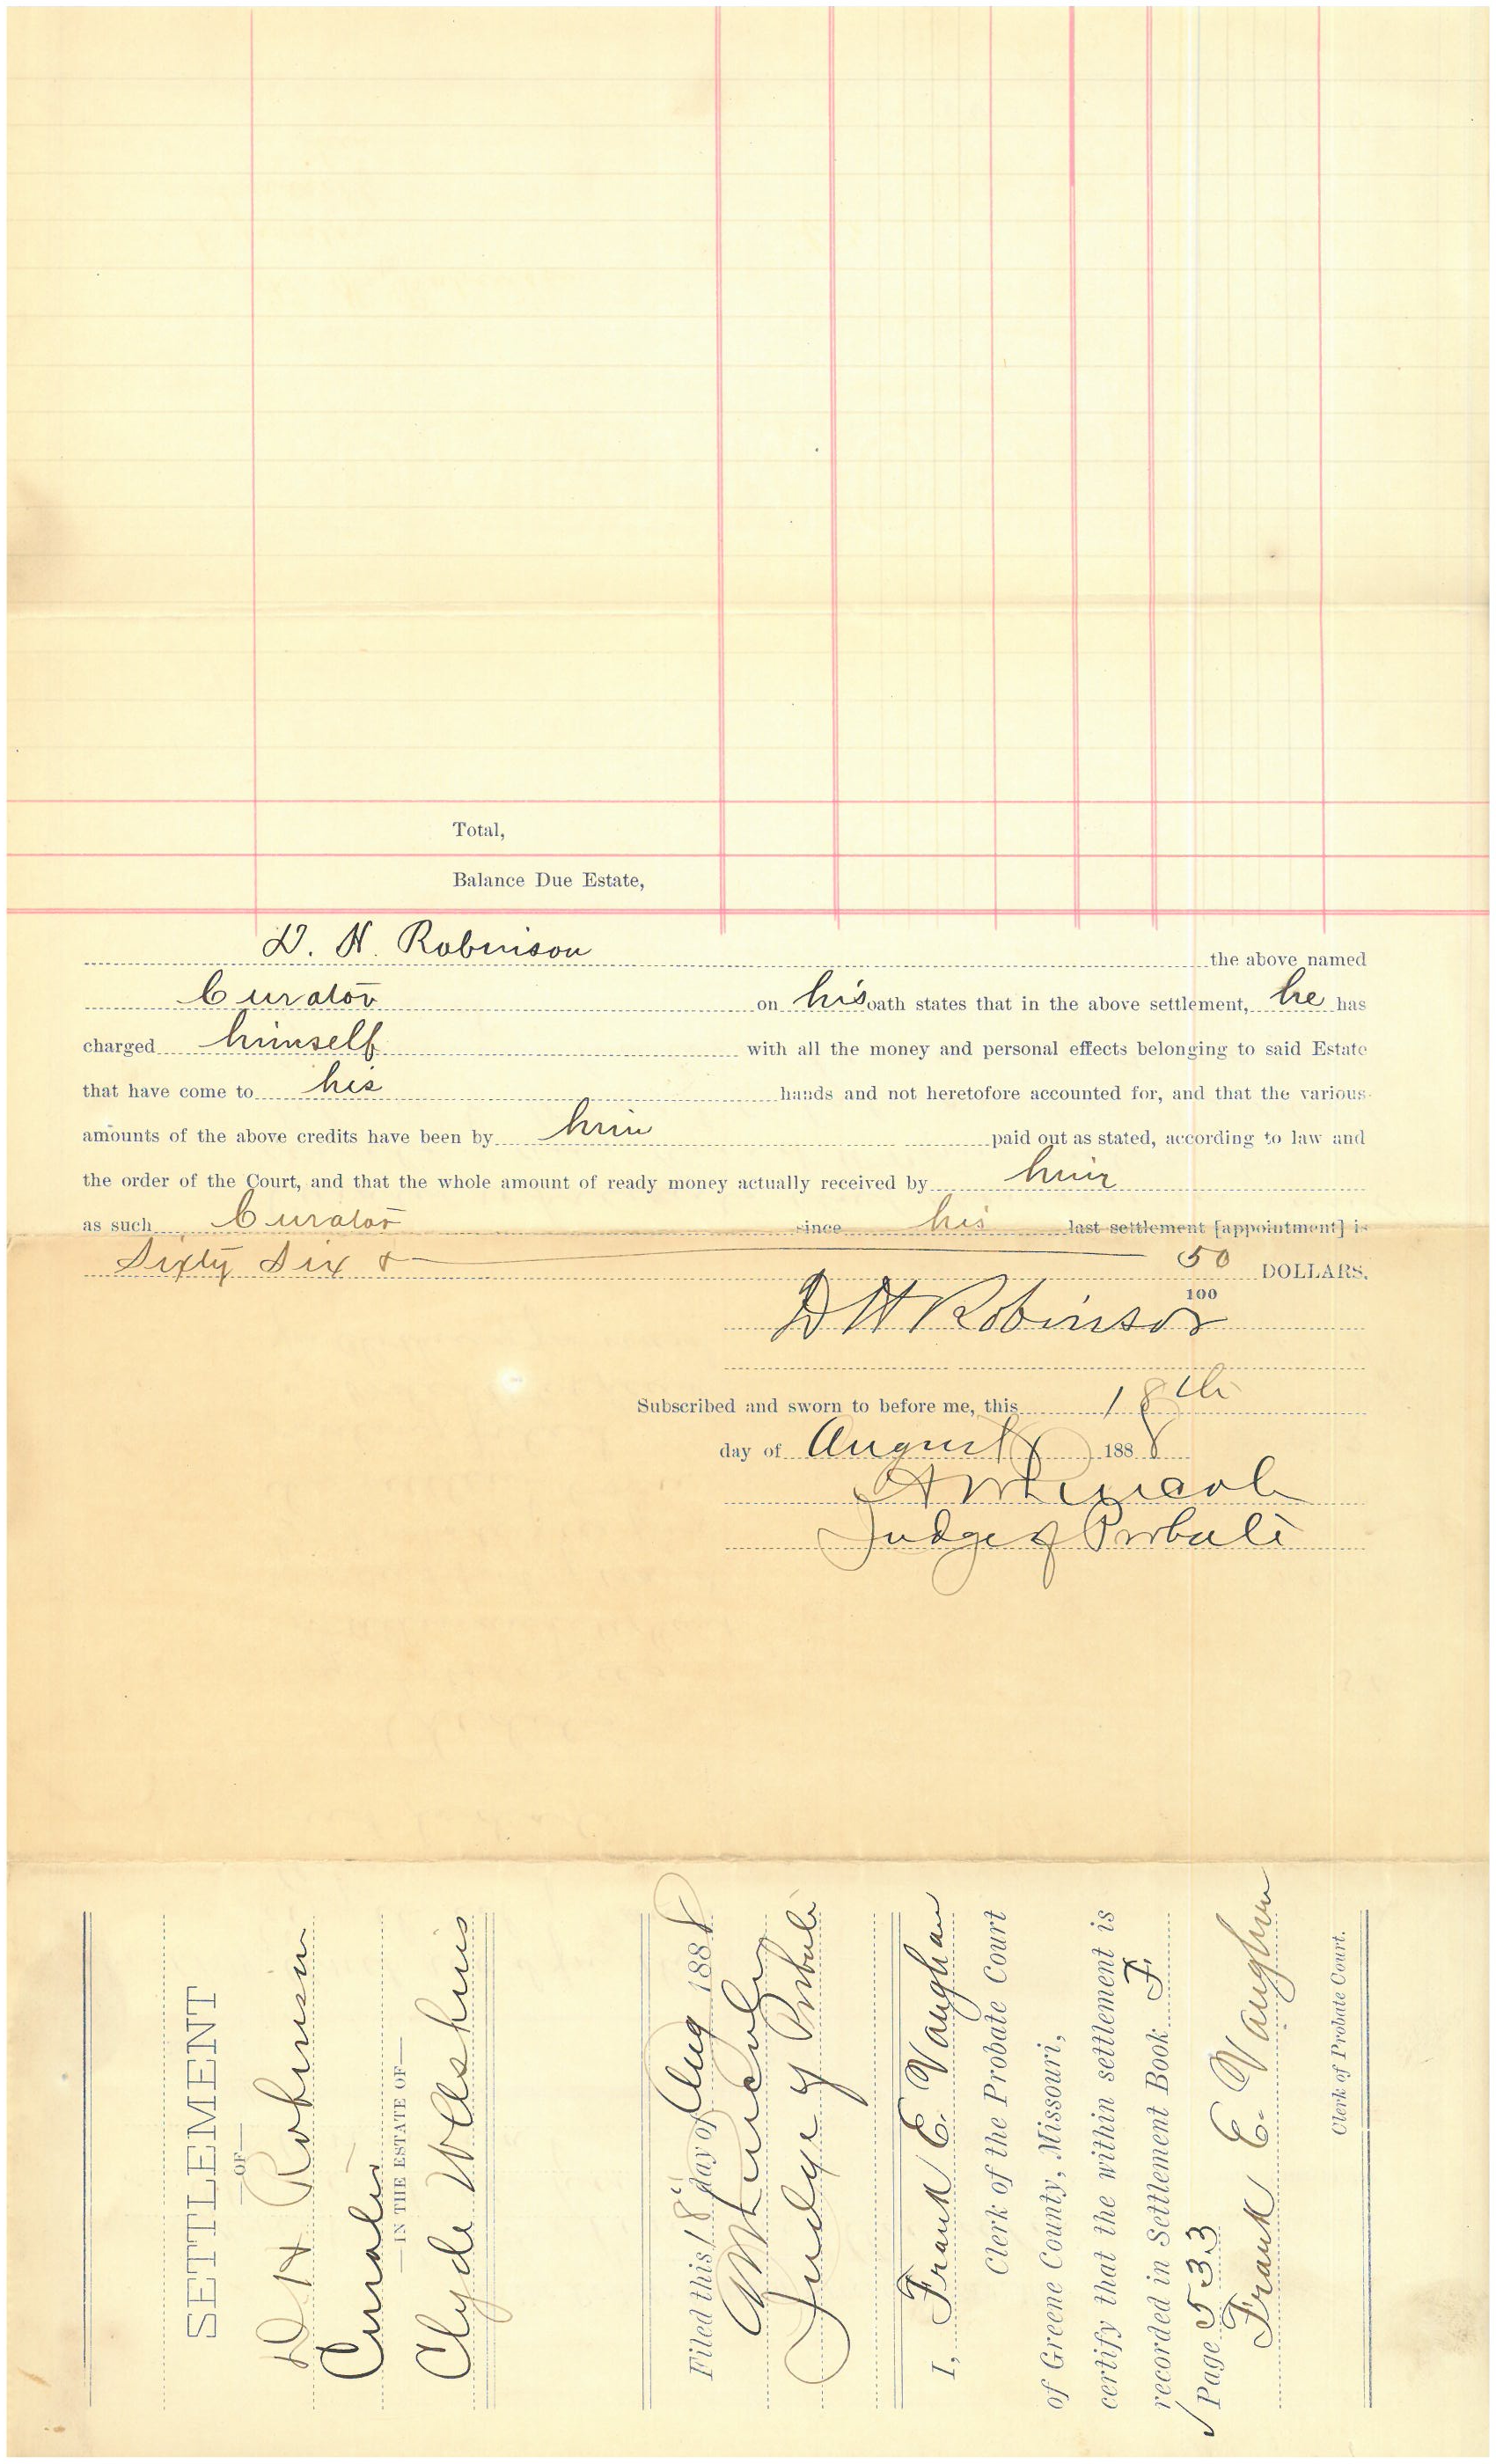 Total,
Balance Due Estate,
D. H. Robinson the above named
Curator on his oath states that in the above settlement, he has
charged himself with all the money and personal effects belonging to said Estate
that have come to his hands and not heretofore accounted for, and that the various
amounts of the above credits have been by him paid out as stated, according to law and
the order of the Court, and that the whole amount of ready money actually received by him
as such Curator since his last settlement [appointment] is
Sixty Six & 50/100 DOLLARS.
D H Robinson
Subscribed and sworn to before me, this 18th
day of August 1888
Lincoln
Judge of Probate
SETTLEMENT
—OF—
D H Robinson
Curator
—IN THE ESTATE OF—
Clyde
Filed this 18" day of Aug 1888
Lincoln
Judge of Probate
I, Frank E. Vaughan
Clerk of the Probate Court
of Greene County, Missouri,
certify that the within settlement is
recorded in Settlement Book F
Page 533
Frank E. Vaughan
Clerk of Probate Court.